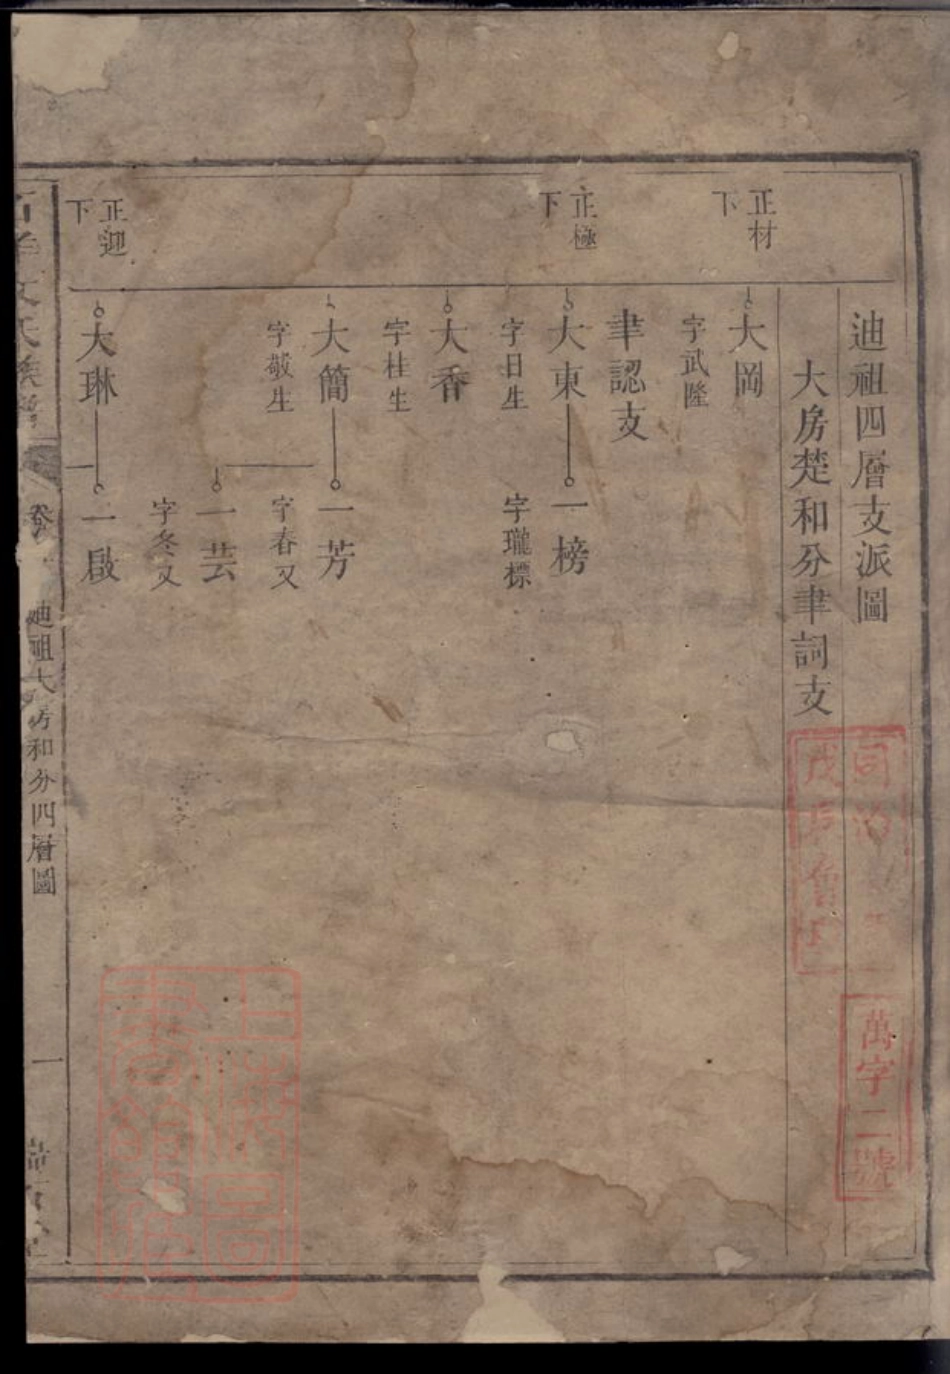 迪祖四層支派圖
大房楚和分聿詞支
正材下
大岡
字武隆
聿認支
正極下
大東
一榜
字日生
字瓏標
大香
字桂生
大簡
一芳
字敬生
字春又
一芸
字冬又
正迎下
大琳
一啟
氏族譜
卷
迪祖大房和分四層圖
一
同治
戊
萬字二號
上海圖
書館藏